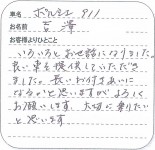 車名 ポルシェ 911
お名前 吉澤
お客様よりひとこと
いろいろとお世話になりました。
良い車を提供していただき
ました。長いお付きあいに
なるかと思いますがよろしく
お願いします。大切に乗りたい
と思います